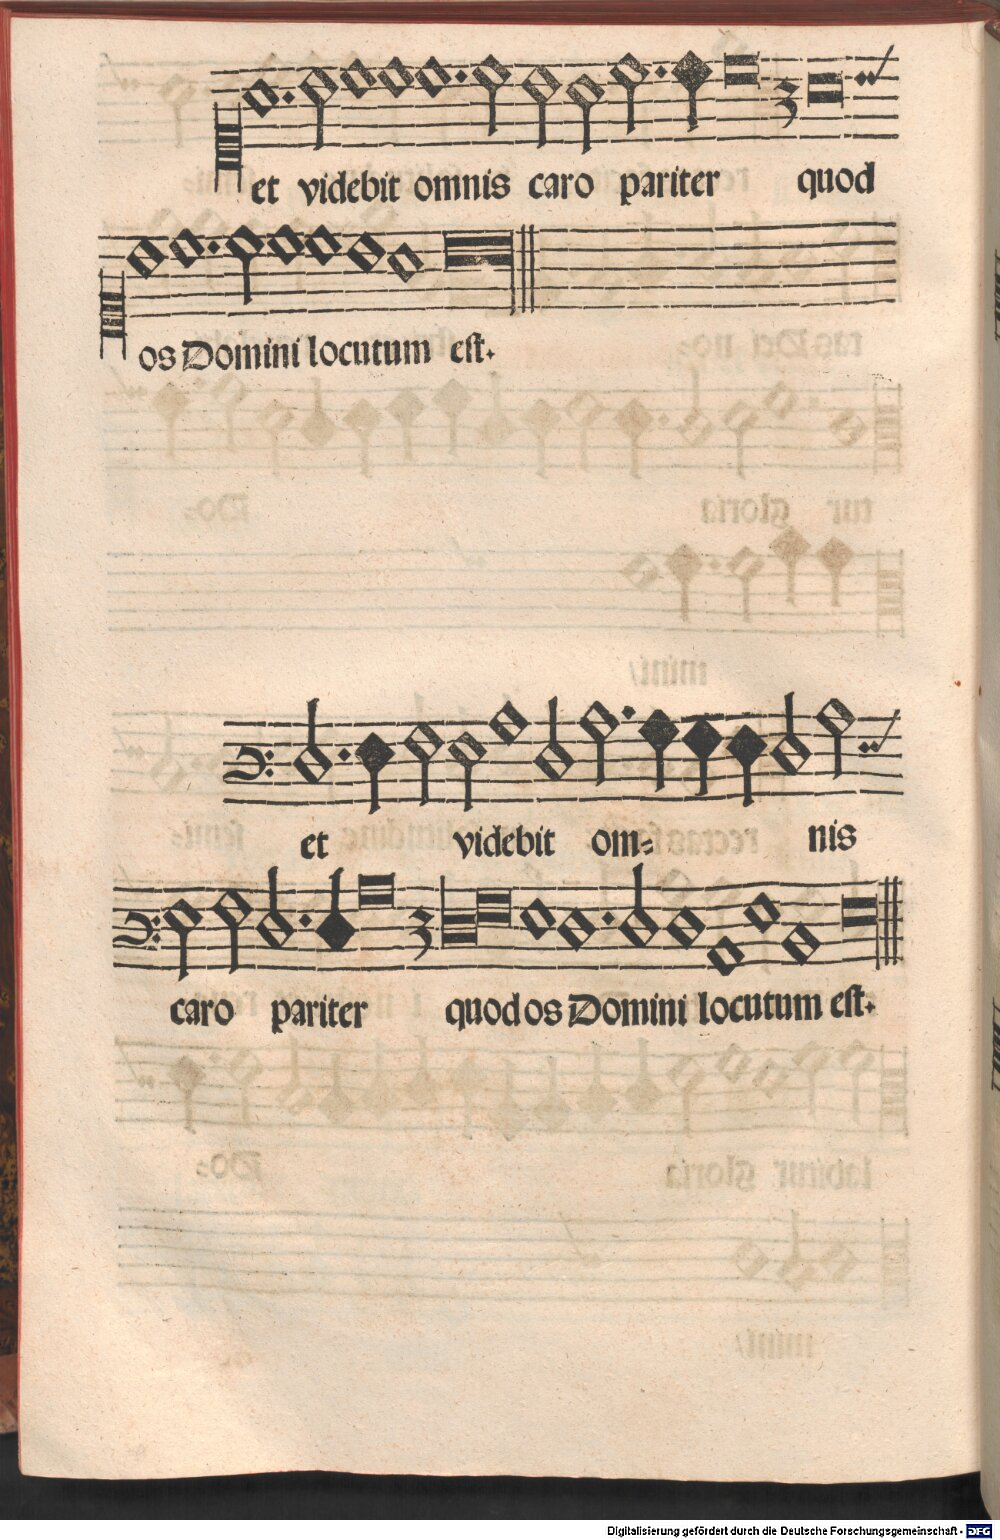 et videbit omnis caro pariter quod
os Domini locutum est.
et videbit om= nis
caro pariter quod os Domini locutum est.
Digitalisierung gefördert durch die Deutsche Forschungsgemeinschaft - DFG